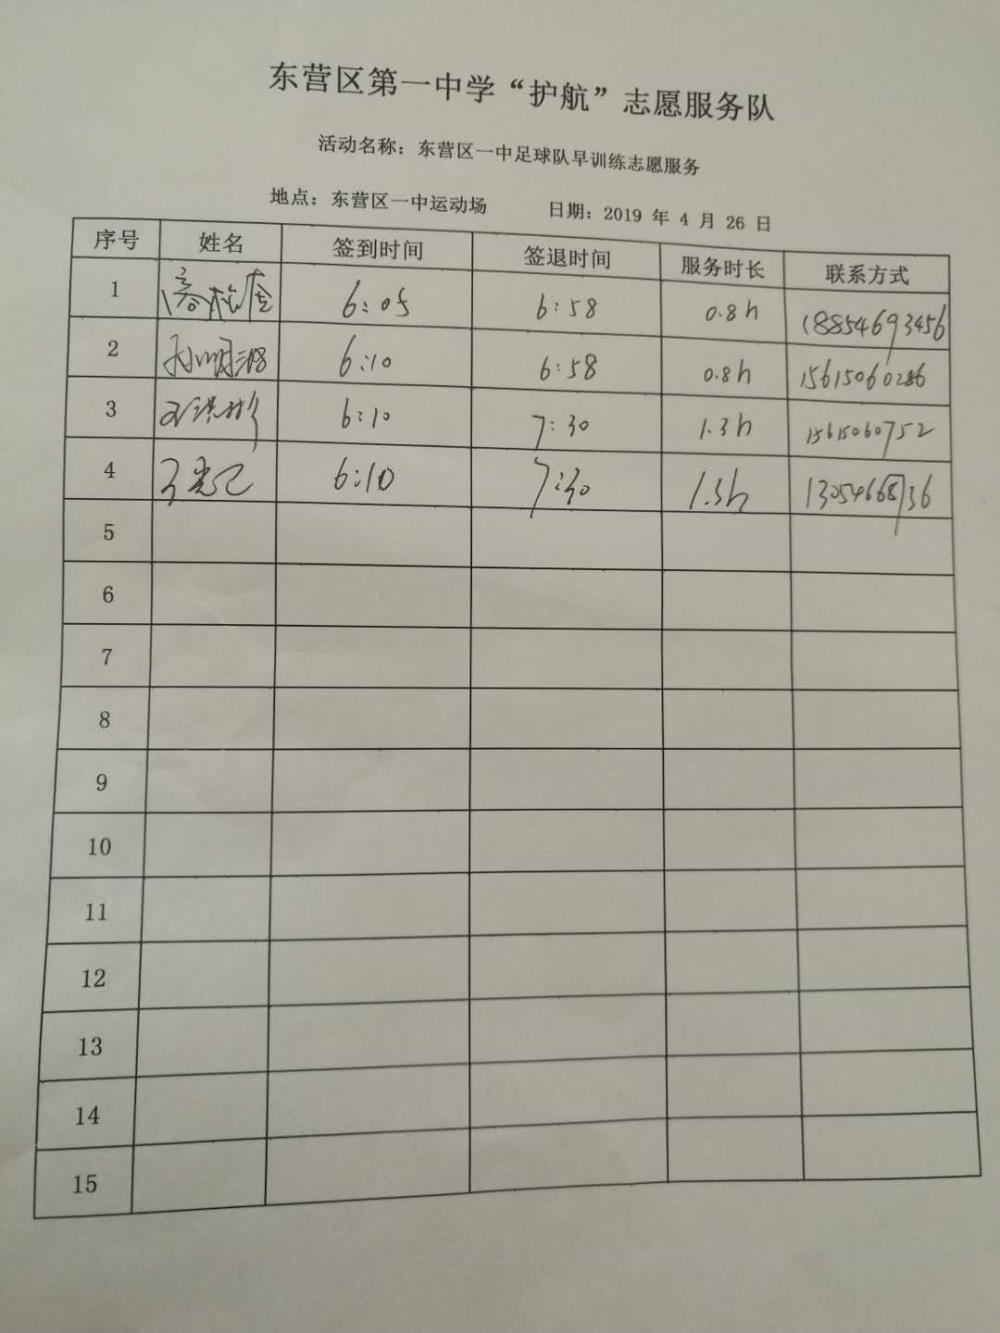 东营区第一中学“护航”志愿服务队
活动名称：东营区一中足球队早训练志愿服务
地点：东营区一中运动场 日期：2019 年 4 月 26 日
序号 姓名 签到时间 签退时间 服务时长 联系方式
1 6:05 6:58 0.8h 18854693456
2 6:10 6:58 0.8h 15615060286
3 6:10 7:30 1.3h 15615060752
4 6:10 7:30 1.3h
5
6
7
8
9
10
11
12
13
14
15